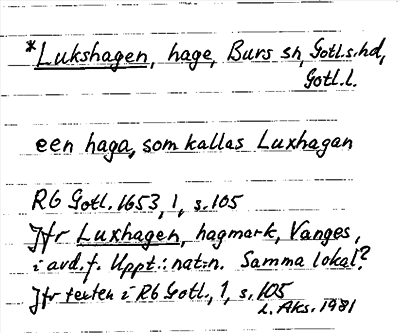 *Lukshagen, hage, Burs sn, Gotl.s.hd,
Gotl.l.
een haga, som kallas Luxhagan
RG Gotl. 1653, 1, s. 105
Jfr Luxhagen, hagmark, Vanges,
i avd. f. Uppt.: nat:n. Samma lokal?
Jfr texten i RG Gotl., 1, s. 105
L. Aks. 1981